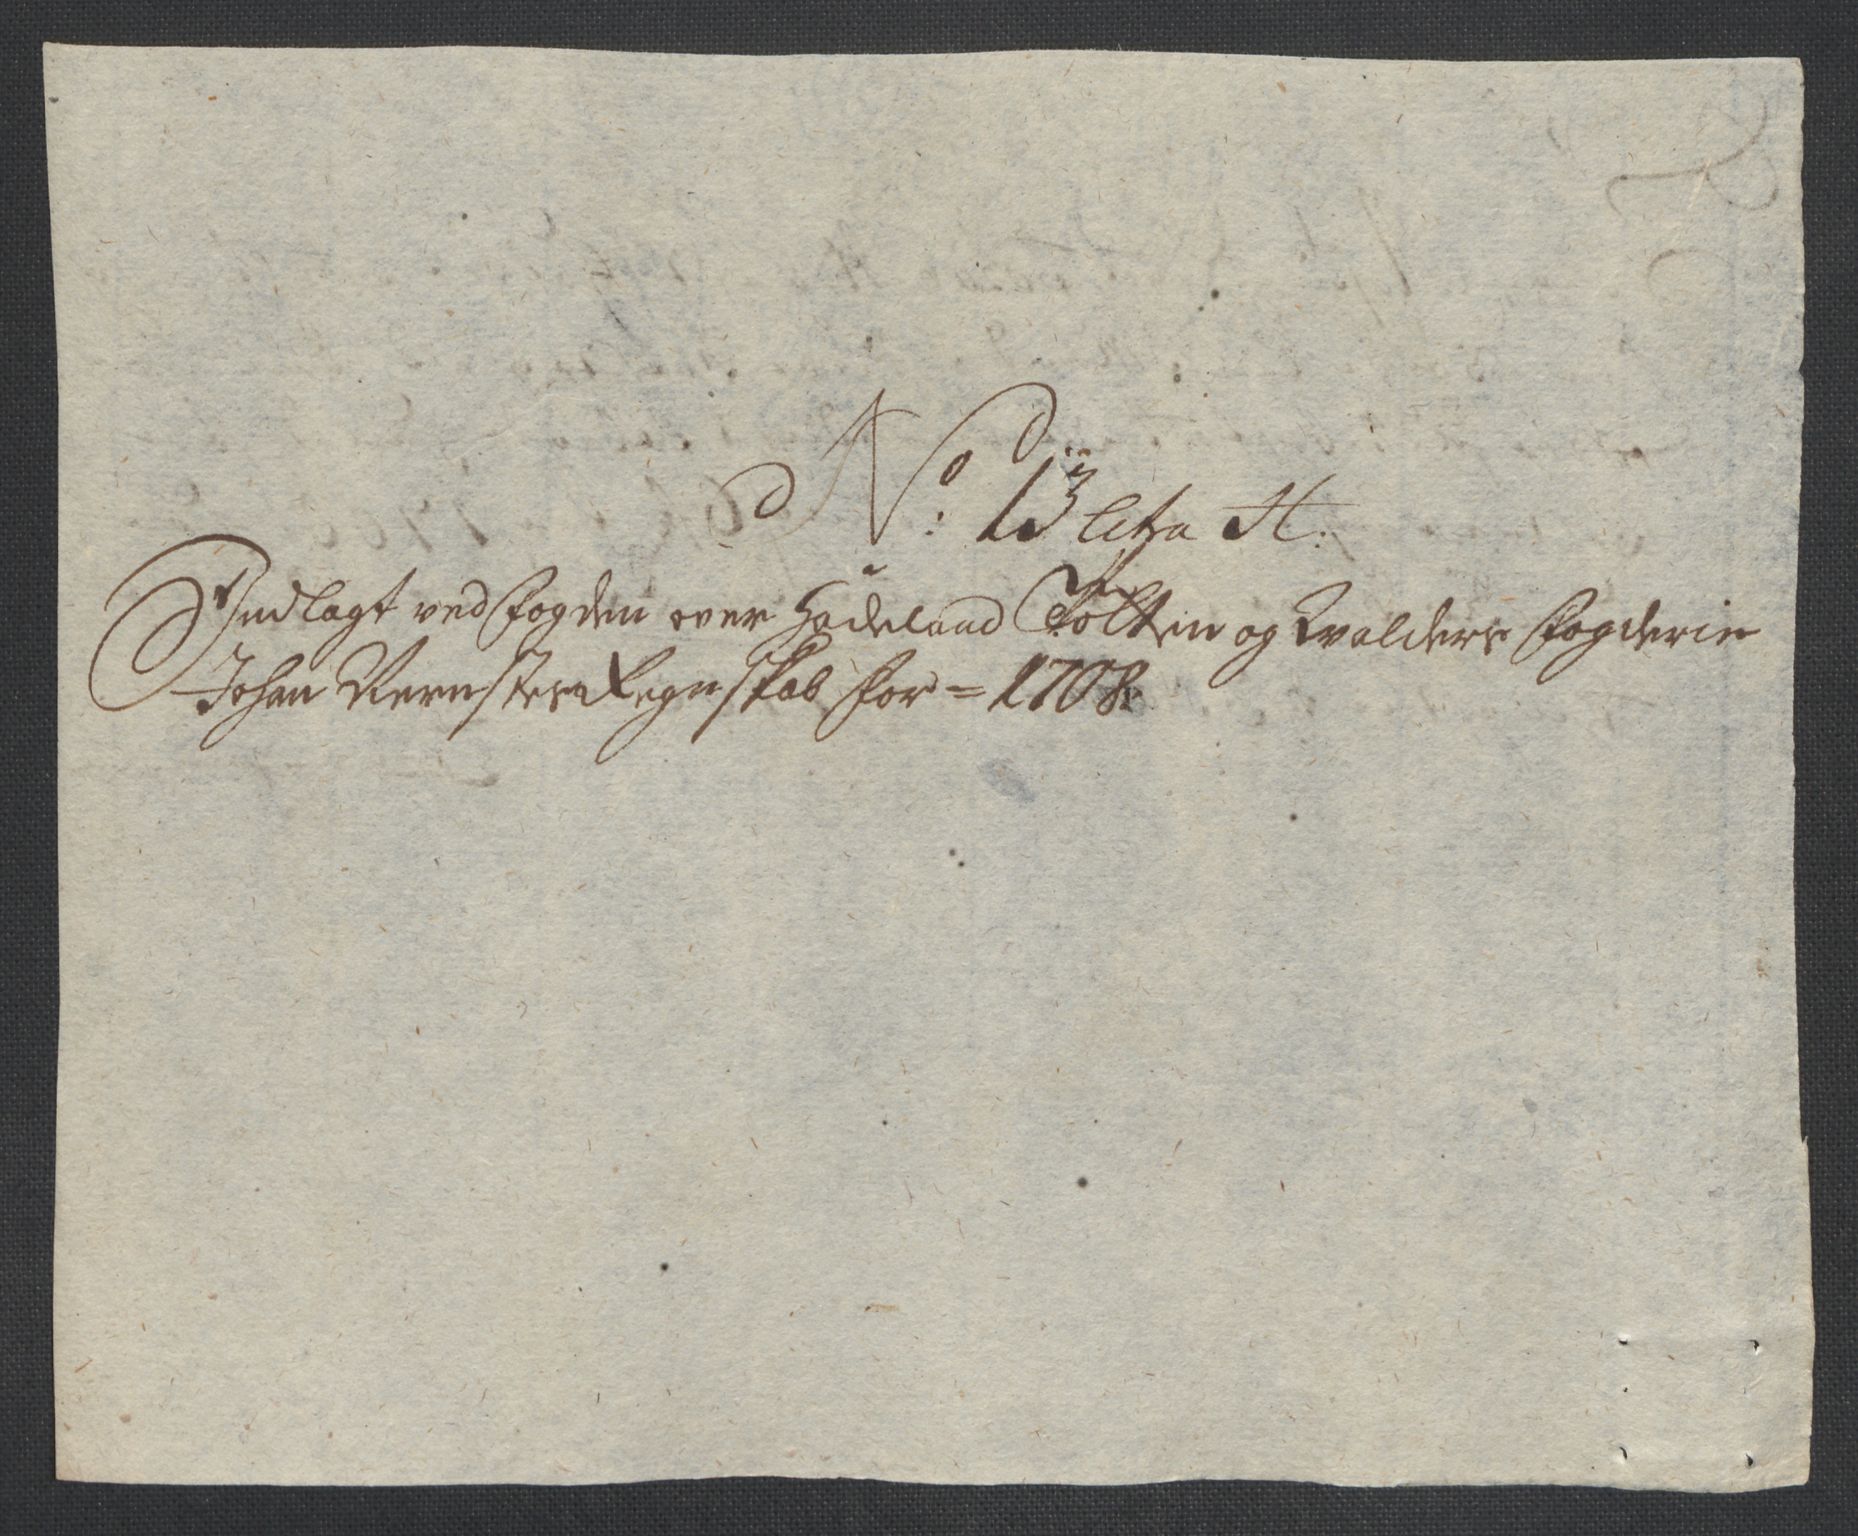 No: 13 litra H.
Indlagt ved fogden over Hadeland Tolten og Walders fogderie
Johan Regnskab for = 1708.